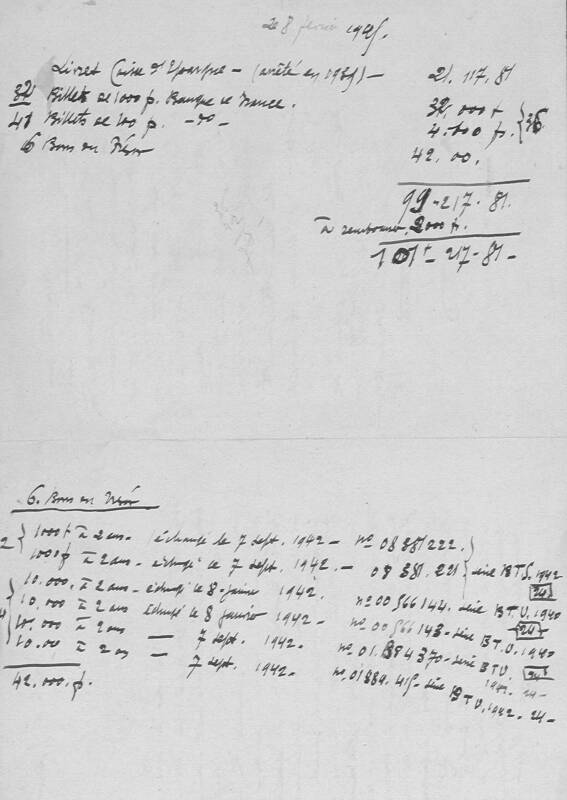 le 8 février 1945.
Livret Caisse d'Epargne - (arrêté en 1939) - 21.117.81
32 Billets de 1000 f. Banque de France. 32.000 f
40 Billets de 100 f. - do - 4.000 f. } 36
6 Bons du Trésor 42.00.
99-217.81.
à rembourser. 2000 f.
101 - 217-81-
6. Bons du Trésor
2 { 1000 f à 2 ans - échangé le 7 sept. 1942 - no 08381222. }
1000 f à 2 ans - échangé le 7 sept. 1942. - 08381.221 } série B T 1942
10.000. à 2 ans - échangé le 8 janvier 1942. no 00566144. série B.T.V. 1940 24
10.000 à 2 ans échangé le 8 janvier 1942 - no 00566143 - série B T V. 1940 24
10.000 à 2 ans — 7 sept. 1942. no 01.884370 - série B T V. 1942. 24 -
10.00 à 2 ans — 7 sept. 1942. no. 01884.415 - série B T V. 1942. 24 -
42.000. f.